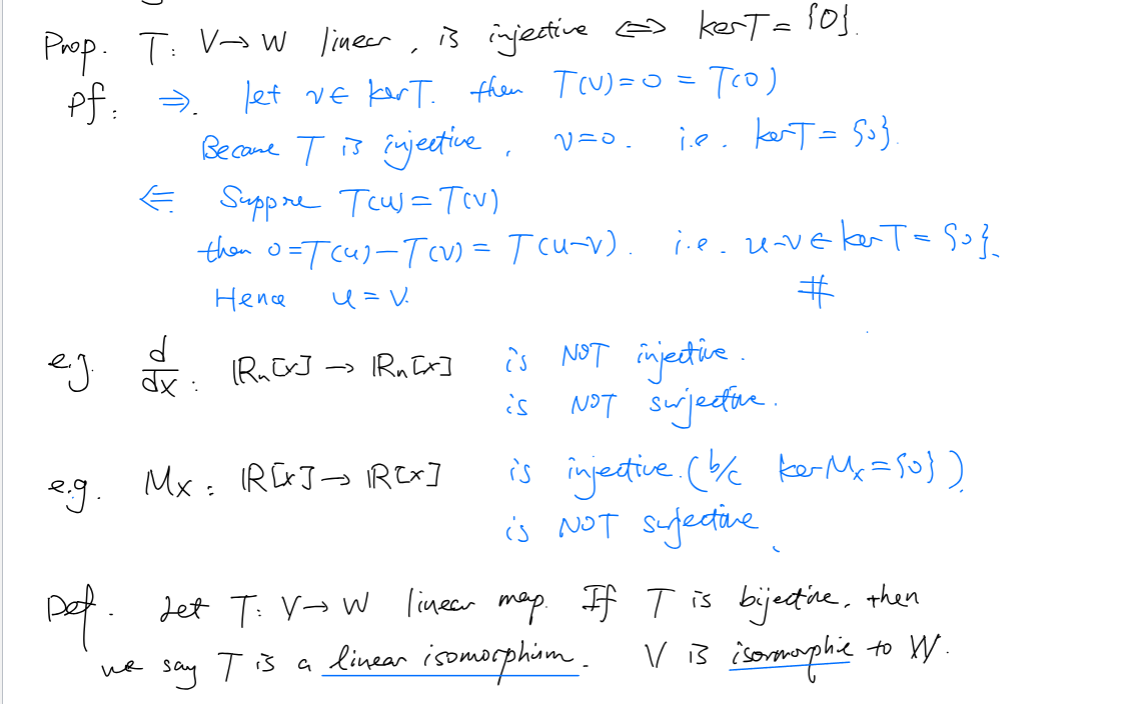 Prop. T: V→W linear, is injective ⇔ kerT = {0}.
pf: ⇒. let v∈ kerT. then T(v)=0 = T(0)
Because T is injective, v=0. i.e. kerT = {0}.
⇐. Suppose T(u) = T(v)
then 0=T(u)-T(v) = T(u-v). i.e. u-v∈ kerT = {0}.
Hence u = v. #
e.g. d/dx : ℝn[x] → ℝn[x] is NOT injective.
is NOT surjective.
e.g. Mx : ℝ[x] → ℝ[x] is injective. (b/c kerMx={0}).
is NOT surjective.
Def. Let T: V→W linear map. If T is bijective, then
we say T is a linear isomorphism. V is isormorphic to W.